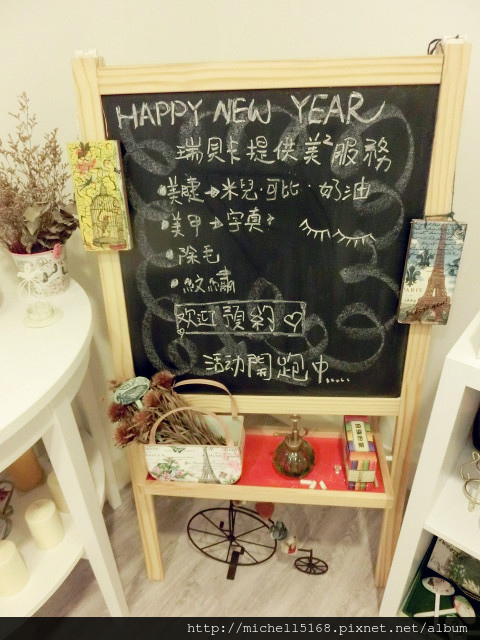 HAPPY NEW YEAR
瑞貝卡提供美²服務
美睫→米兒.可比.奶油
美甲→字真²
除毛
紋繡
欢迎預約♡
活动開跑中.....
PARIS
http://michell5168.pixnet.net/album